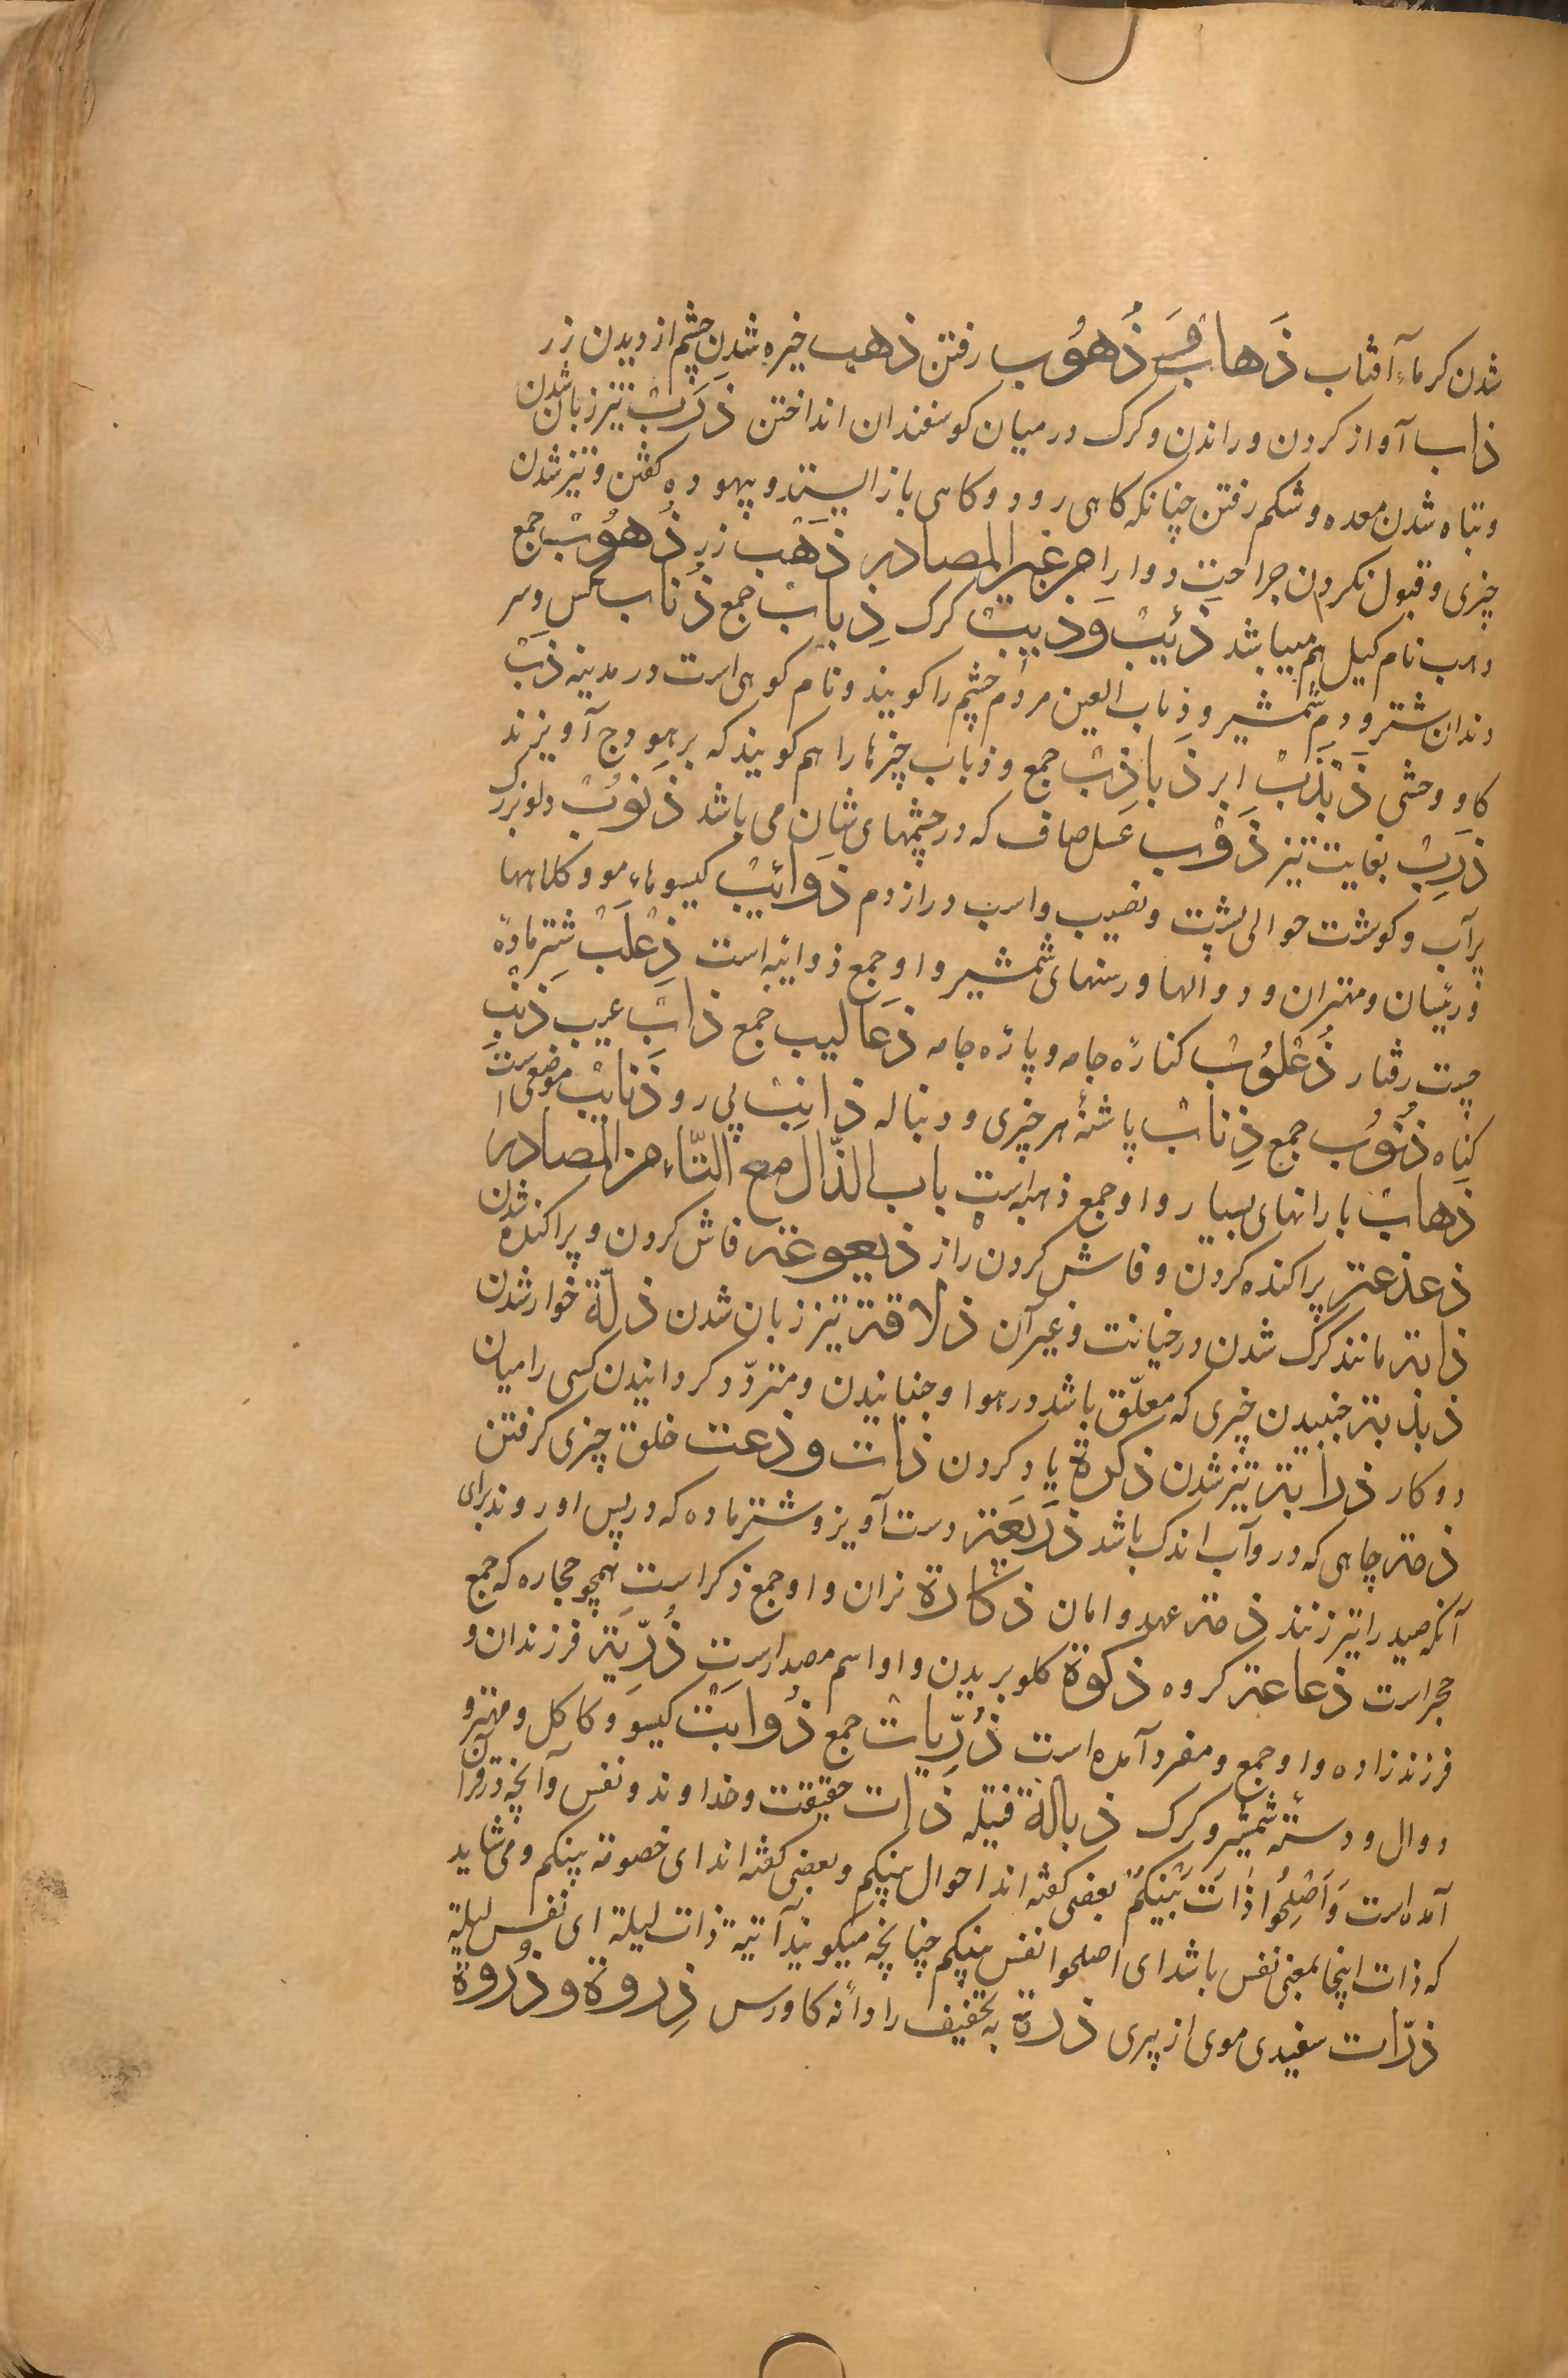 شدن کرماء آفتاب ذَهاب وَ ذُهوُب رفتن ذهب خیره شدن چشم از دیدن زر
ذاب آواز کردن و راندن و کرک در میان کوسفندان انداختن ذَرَبْ تیز زبان شدن
و تباه شدن معده و شکم رفتن چنانکه کاهی رود و کاهی باز ایستد و بیهوده کفتن و تیز شدن
چیزی و قبول نکردن جراحت دوا را من غیر المصادر ذَهَبْ زر ذُهوُبْ جمع
و ذهب نام کیل هم میباشد ذَئیبْ وَ ذیبْ کرک ذِیابْ جمع ذُبَاب مکس و سر
دندان شتر و دم شمشیر و ذباب العین مردم چشم را کویند و نام کوهی است در مدینه ذَبْ
کاو وحشی ذَبْذَبْ ابر ذَباذِبْ جمع و ذباب چیزها را هم کویند که بر هودج آویزند
ذَرِبْ بغایت تیز ذَوْب عسل صاف که در چشمهای شان می باشد ذَنوُبْ دلو بزرک
پر آب و کوشت حوالی پشت و نصیب و اسب دراز دم ذَوائبْ کیسوهاء مو و کلاهها
و رئیسان و مهتران و دوالها و رستهای شمشیر و او جمع ذوابه است ذِعْلَبْ شتر مادهٔ
چست رفتار ذُعْلوُبْ کنارهٔ جامه و پارهٔ جامه ذَعَالیب جمع ذابْ عیب ذَنْبْ
کناه ذُنوُب جمع ذِنابْ پاشنهٔ هر چیزی و دنباله ذانِبْ پی رو ذَنایبْ موضعی است
ذهابْ بارانهای بسیار و او جمع ذهبه است باب الذّال مع التّاء من المصادر
ذعذعتر پراکنده کردن و فاش کردن راز ذیعوعتر فاش کردن و پراکنده شدن
ذابتر مانند کرک شدن در خیانت و غیر آن ذلاقتر تیز زبان شدن ذلّة خوار شدن
ذبذبتر جنبیدن چیزی که معلّق باشد در هوا و جنبانیدن و متردّد کردانیدن کسی را میان
دو کار ذرابتر تیز شدن ذکرة یاد کردن ذات و ذعت خلق چیزی کرفتن
ذمتر چاهی که در و آب اندک باشد ذَرِیعَتر دست آویز و شتر ماده که در پس او روند برای
آنکه صید را تیر زنند ذمتر عهد و امان ذکارة نران و او جمع ذکر است همچو حجاره که جمع
حجر است ذعاعتر کروه ذکوة کلو بریدن و او اسم مصدر است ذُرّیَتر فرزندان و
فرزندزاده و او جمع و مفرد آمده است ذُرّیاتْ جمع ذُوابَتْ کیسو و کاکل و مهتر و
دوال و دستهٔ شمشیر و کرک ذبالة فتیله ذات حقیقت و خداوند و نفس و آنچه در قرآن
آمده است وَاَصْلِحُوا ذَاتَ بَیْنِکُمْ بعضی کفته اند احوال بینکم و بعضی کفته اند ای خصومة بینکم و می شاید
که ذات اینجا بمعنی نفس باشد ای اصلحوا نفس بینکم چنانچه میکویند آتیة ذات لیلة ای نفس لیلة
ذرّات سفیدی موی از پیری ذرة به تخفیف را دانه کاورس ذِروة و ذُروة